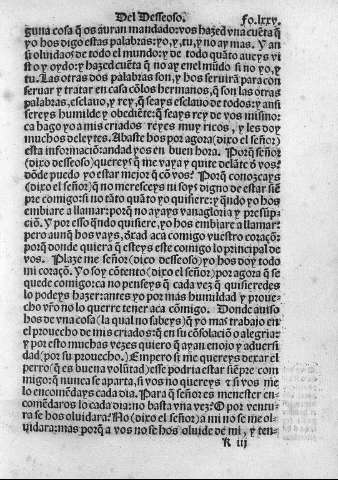 Del Desseoso. Fo.lxxv.
guna cosa q̃ os auran mandado: vos hazed vna cuẽta q̃
yo hos digo estas palabras: yo, y, tu, y no ay mas. Y an
si oluidaos de todo el mundo: y de todo quãto aueys vi
sto y oydo: y hazed cuẽta q̃ no ay en el mũdo si no yo, y
tu. Las otras dos palabras son, y hos seruirã para con
seruar y tratar en casa cõlos hermanos, q̃ son las otras
palabras, esclauo, y rey, q̃ seays esclauo de todos: y ansi
sereys humilde y obediẽte: q̃ seays rey de vos mismo:
ca hago yo a mis criados reyes muy ricos, y les doy
muchos deleytes. Abaste hos por agora (dixo el señor)
esta informaciõ: andad vos en buen hora. Porq̃ señor
(dixo desseoso) quereys q̃ me vaya y quite delãte õ vos?
dõde puedo yo estar mejor q̃ cõ vos? Porq̃ conozcays
(dixo el señor) q̃ no meresceys ni soys digno de estar siẽ
pre comigo: si no tãto quãto yo quisiere: y qñdo yo hos
embiare a llamar: porq̃ no ayays vanagloria y presup-
ciõ. Y por esso qñdo quisiere, yo hos embiare a llamar:
pero aunq̃ hos vays, õrad aca comigo vuestro coraçõ:
porq̃ donde quiera q̃ esteys este comigo lo principal de
vos. Plaze me señor (dixo desseoso) yo hos doy todo
mi coraçõ. Yo soy cõtento (dixo el señor) por agora q̃ se
quede comigo: ca no penseys q̃ cada vez q̃ quisieredes
lo podeys hazer: antes yo por mas humildad y proue-
cho vr̃o no lo querre tener aca cõmigo. Donde auiso
hos de vna cosa (la qual no sabeys) q̃ yo mas trabajo en
el prouecho de mis criados: q̃ en su cõsolaciõ o alegria:
y por esto muchas vezes quiero q̃ ayan enojo y aduersi
dad (por su prouecho.) Empero si me quereys dexar el
perro (q̃ es buena volũtad) esse podria estar siẽpre com
migo: q̃ nunca se aparta, si vos no quereys ⁊ si vos me
lo encomẽdays cada dia. Para q̃ señor es menester en-
comẽdaros lo cada dia: no basta vna vez? O por ventu-
ra se hos oluidara? No (dixo el señor) a mi no se me ol-
uidara: mas porq̃ a vos no se hos oluide de mi, y ten-
K iij